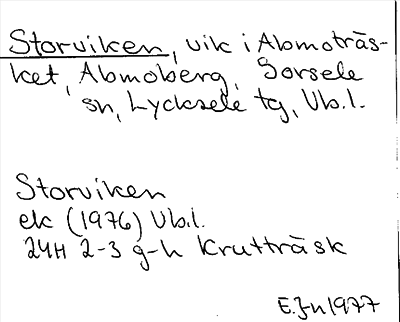 Storviken, vik i Abmoträs-
ket, Abmoberg, Sorsele
sn, Lycksele tg, Vb.l.
Storviken
ek (1976) Vb.l.
24H 2-3 g-h Krutträsk
E.Jn 1977